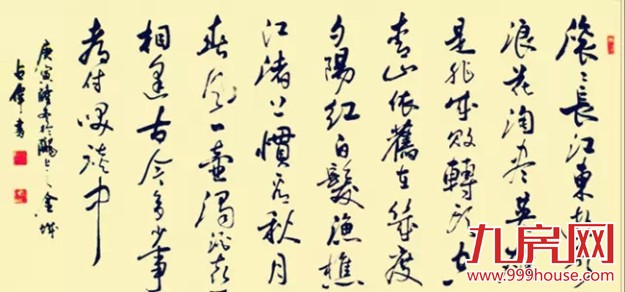 滚〻長江東逝水
浪花淘尽英雄
是非成敗轉头空
青山依舊在幾度
夕陽紅白髮漁樵
江渚上慣看秋月
春风一壺濁酒喜
相逢古今多少事
都付笑談中
庚寅
书
九房网
www.999house.com